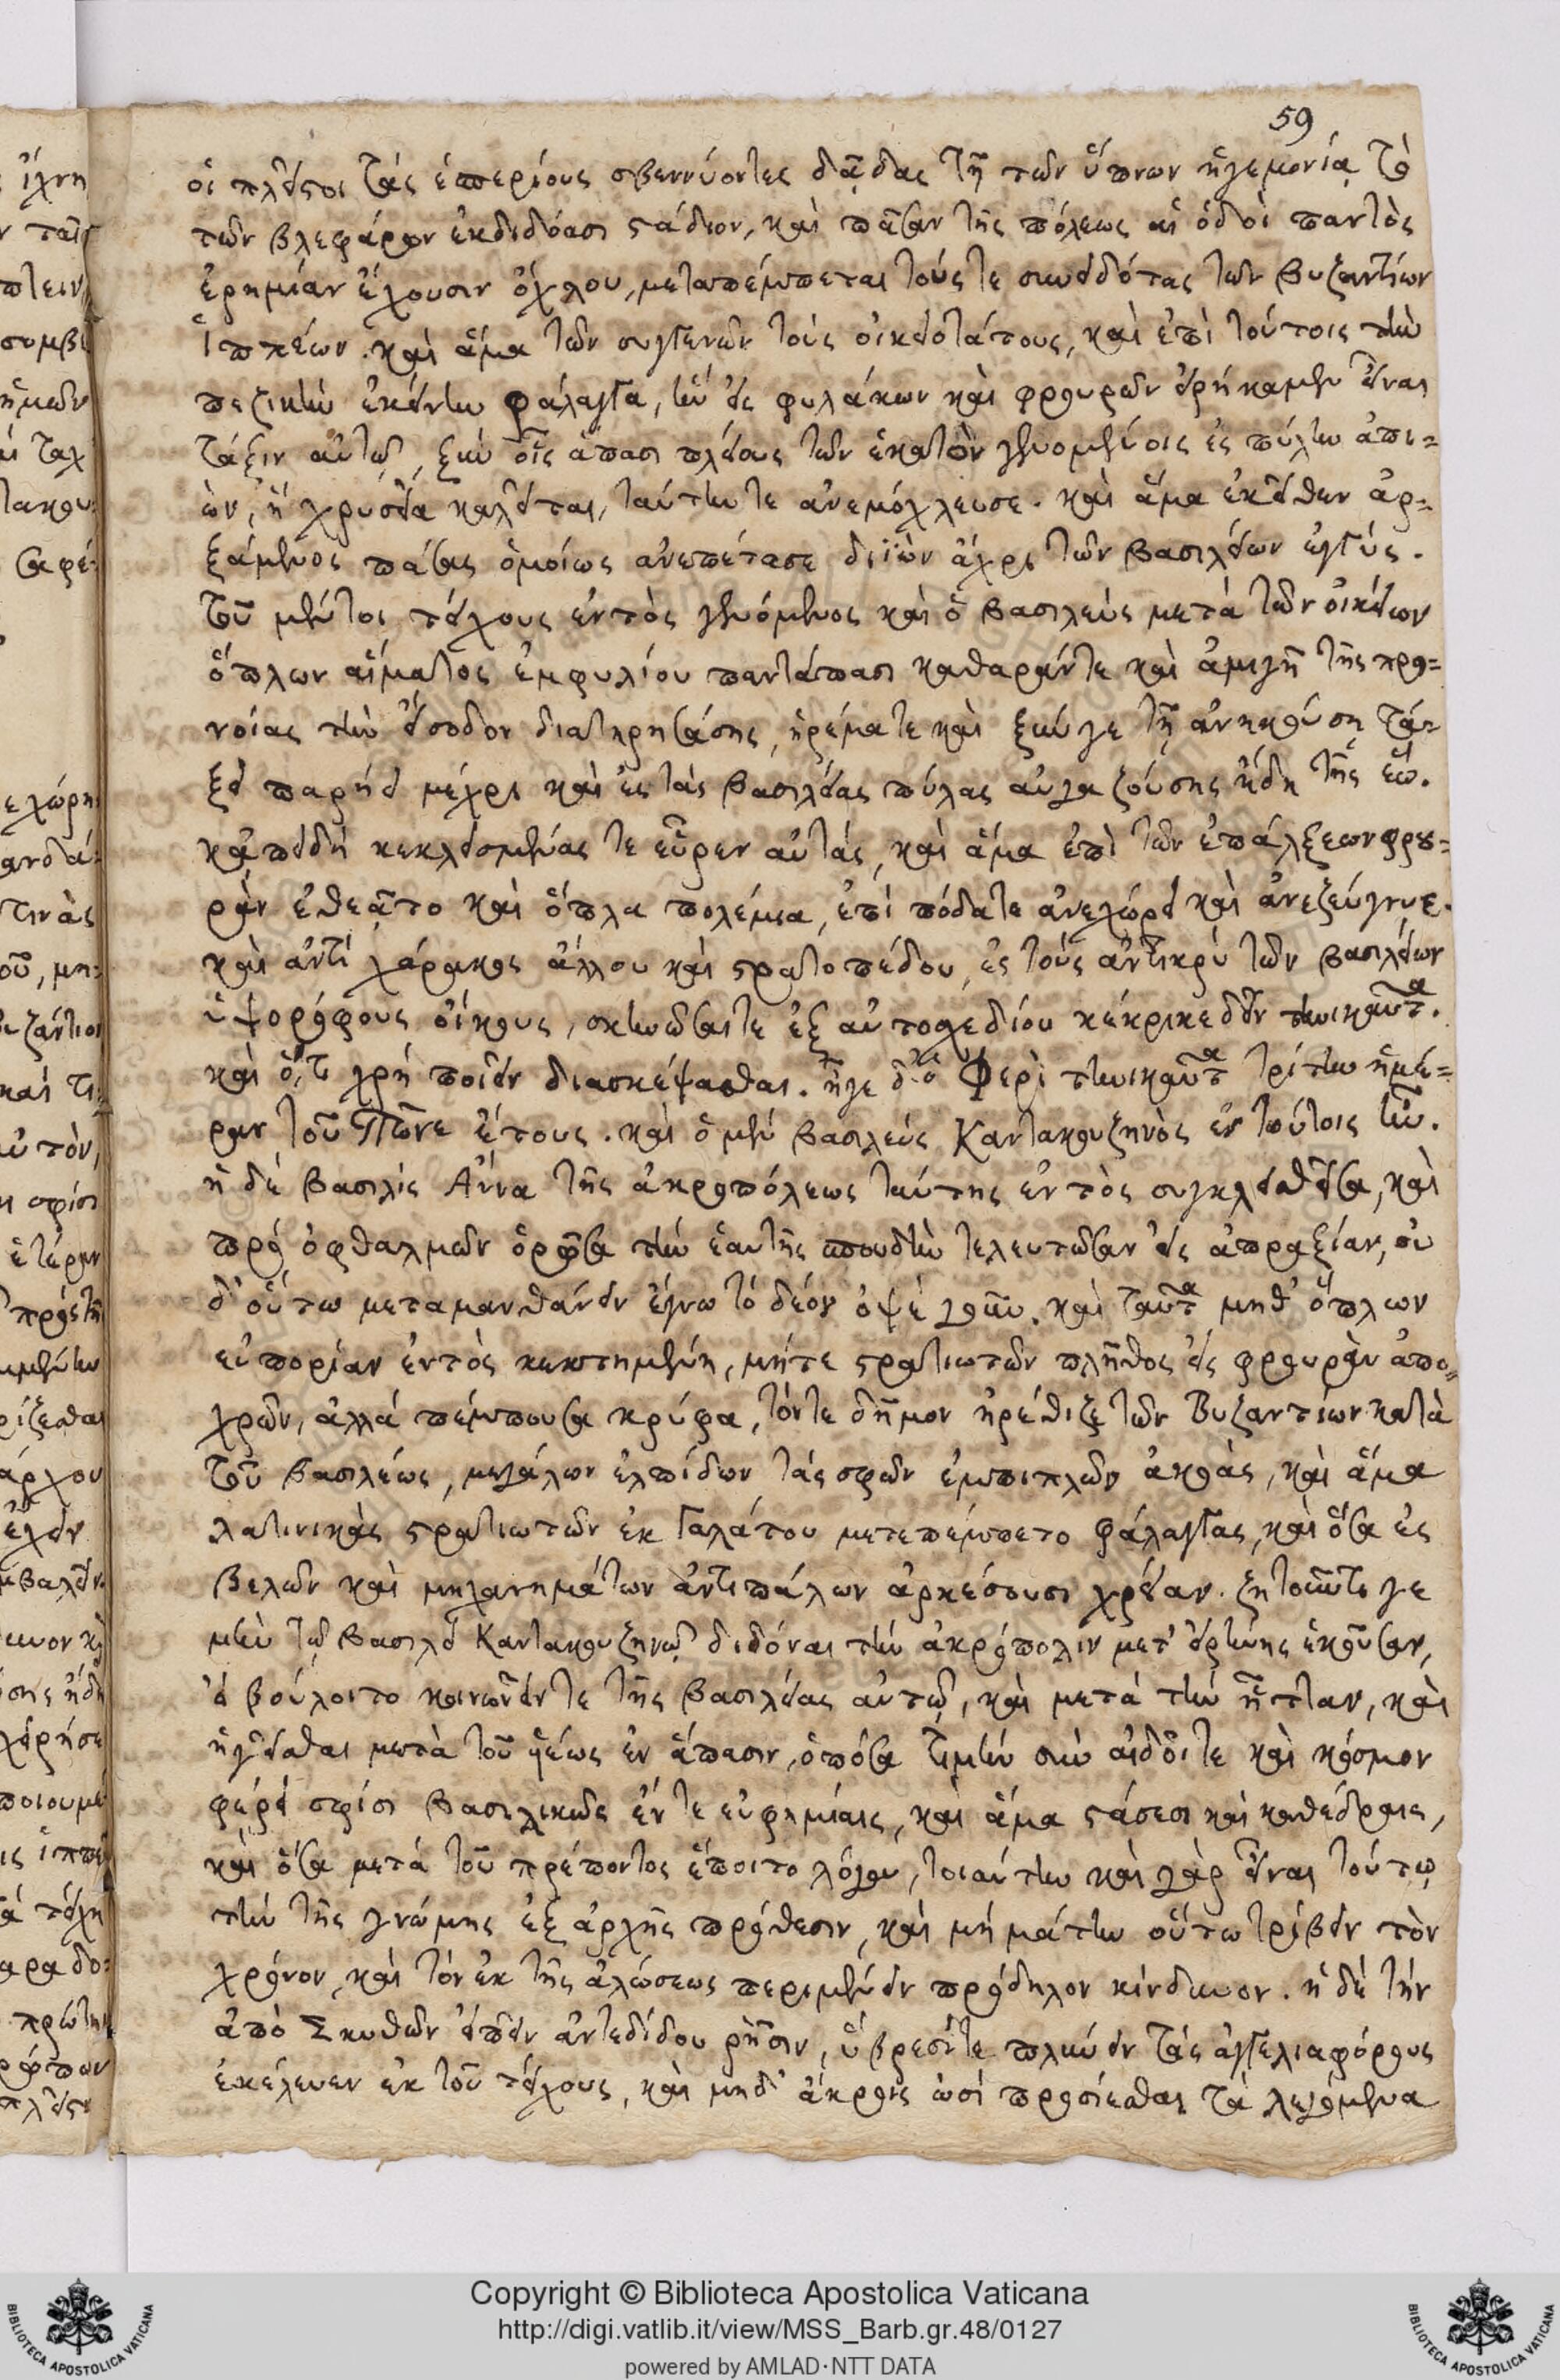 59
οἱ πλεῖστοι τὰς ἑσπερίους σβεννύοντες δᾷδας τῇ τῶν ὕπνων ἡγεμονίᾳ τὸ
τῶν βλεφάρων ἐκδιδόασι στάδιον, καὶ πᾶσαν τῆς πόλεως αἱ ὁδοὶ παντὸς
ἐρημίαν ἔχουσιν ὄχλου, μεταπέμπεται τούς τε συνειδότας τῶν Βυζαντίων
ἱππέων. καὶ ἅμα τῶν συγγενῶν τοὺς οἰκειοτάτους, καὶ ἐπὶ τούτοις τὴν
πεζικὴν ἐκείνην φάλαγγα, ἣν εἰς φυλάκων καὶ φρουρῶν εἰρήκαμεν εἶναι
τάξιν αὐτῷ, ξὺν οἷς ἅπασι πλείους τῶν ἑκατὸν γενομένοις ἐς πύλην ἀπι=
ὼν, ἣ χρυσεία καλεῖται, ταύτην τε ἀνεμόχλευσε. καὶ ἅμα ἐκεῖθεν ἀρ=
ξάμενος πάσας ὁμοίως ἀνεπέτασε διϊὼν ἄχρι τῶν βασιλείων ἐγγύς.
τοῦ μέντοι τείχους ἐντὸς γενόμενος καὶ ὁ βασιλεὺς μετὰ τῶν οἰκείων
ὅπλων αἵματος ἐμφυλίου παντάπασι καθαράν τε καὶ ἀμιγῆ τῆς προ=
νοίας τὴν εἴσοδον διατηρησάσης, ἠρέμα τε καὶ ξύν γε τῇ ἀνηκούσῃ τά=
ξει παρῄει μέχρι καὶ ἐς τὰς βασιλείας πύλας αὐγαζούσης ἤδη τῆς ἕω.
κἀπειδὴ κεκλεισμένας τε εὗρεν αὐτάς, καὶ ἅμα ἐπὶ τῶν ἐπάλξεων φρου=
ρὰν ἐθεᾶτο καὶ ὅπλα πολέμια, ἐπὶ πόδα τε ἀνεχώρει καὶ ἀνεζεύγνυε.
καὶ ἀντὶ χάρακος ἄλλου καὶ στρατοπέδου, ἐς τοὺς ἀντικρὺ τῶν βασιλείων
ὑψορόφους οἴκους, σκηνῶσαί τε ἐξ αὐτοσχεδίου κέκρικε δεῖν τηνικαῦτα.
καὶ ὅ,τι χρὴ ποιεῖν διασκέψασθαι. ἦγε δὲ ὁ Φερὶ τηνικαῦτα τρίτην ἡμέ=
ραν τοῦ ϛωνε ἔτους. καὶ ὁ μὲν βασιλεὺς Καντακουζηνὸς ἐν τούτοις ἦν.
ἡ δὲ βασιλὶς Ἄννα τῆς ἀκροπόλεως ταύτης ἐντὸς συγκλεισθεῖσα, καὶ
πρὸ ὀφθαλμῶν ὁρῶσα τὴν ἑαυτῆς σπουδὴν τελευτῶσαν εἰς ἀπραξίαν, οὐ
δ' οὕτω μεταμανθάνειν ἔγνω τὸ δέον ὀψὲ γοῦν. καὶ ταῦτα μηθ' ὅπλων
εὐπορίαν ἐντὸς κεκτημένη, μήτε στρατιωτῶν πλῆθος εἰς φρουρὰν ἀπο=
χρῶν, ἀλλὰ πέμπουσα κρύφα, τόν τε δῆμον ἠρέθιζε τῶν Βυζαντίων κατὰ
τοῦ βασιλέως, μεγάλων ἐλπίδων τὰς σφῶν ἐμπιπλῶν ἀκοάς, καὶ ἅμα
λατινικὰς στρατιωτῶν ἐκ Γαλάτου μετεπέμπετο φάλαγγας, καὶ ὅσα ἐς
βελῶν καὶ μηχανημάτων ἀντιπάλων ἀρκέσουσι χρείαν. ζητοῦντι γε
μὴν τῷ βασιλεῖ Καντακουζηνῷ διδόναι τὴν ἀκρόπολιν μετ' εἰρήνης ἑκοῦσαν,
εἰ βούλοιτο κοινωνεῖν τε τῆς βασιλείας αὐτῷ, καὶ μετὰ τὴν ἧτταν, καὶ
ἡγεῖσθαι μετὰ τοῦ υἱέως ἐν ἅπασιν, ὁπόσα τιμὴν σὺν αἰδοῖ τε καὶ κόσμον
φέρει σφίσι βασιλικῶς ἔν τε εὐφημίαις, καὶ ἅμα στάσεσι καὶ καθέδραις,
καὶ ὅσα μετὰ τοῦ πρέποντος ἕποιτο λόγου, τοιαύτην καὶ γὰρ εἶναι τούτῳ
τὴν τῆς γνώμης ἐξ ἀρχῆς πρόθεσιν, καὶ μὴ μάτην οὕτω τρίβειν τὸν
χρόνον, καὶ τὸν ἐκ τῆς ἁλώσεως περιμένειν πρόδηλον κίνδυνον. ἡ δὲ τὴν
ἀπὸ Σκυθῶν εἰπεῖν ἀντεδίδου ῥῆσιν, ὕβρεσί τε πλύνειν τὰς ἀγγελιαφόρους
ἐκέλευεν ἐκ τοῦ τείχους, καὶ μηδ' ἄκροις ὠσὶ προσίεσθαι τὰ λεγόμενα
Copyright © Biblioteca Apostolica Vaticana
http://digi.vatlib.it/view/MSS_Barb.gr.48/0127
powered by AMLAD·NTT DATA
BIBLIOTECA APOSTOLICA VATICANA
BIBLIOTECA APOSTOLICA VATICANA